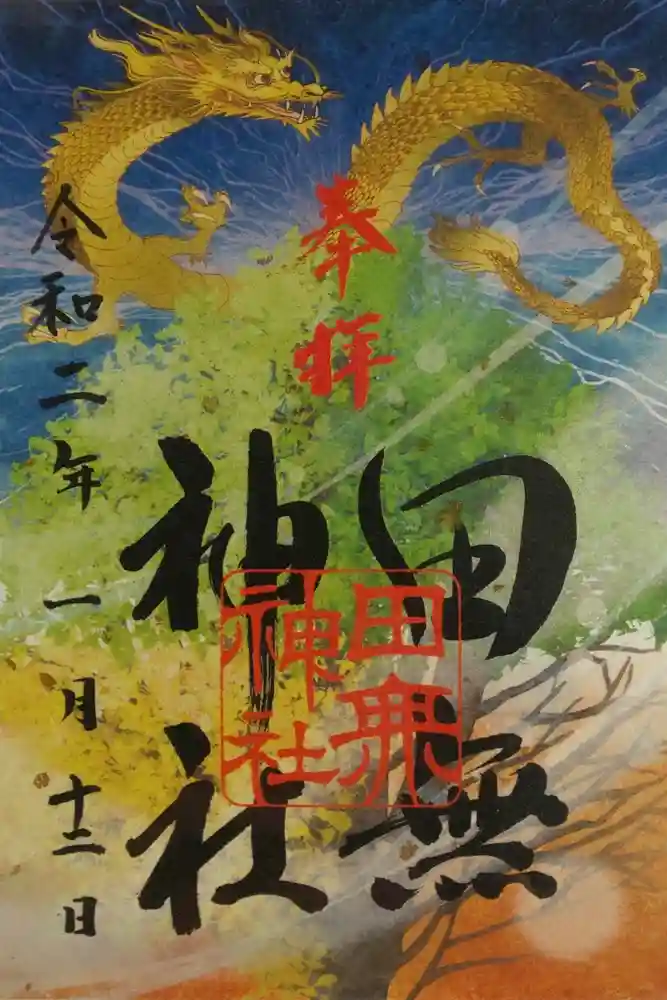 奉拝
田無
神社
田無
神社
令和二年一月十二日